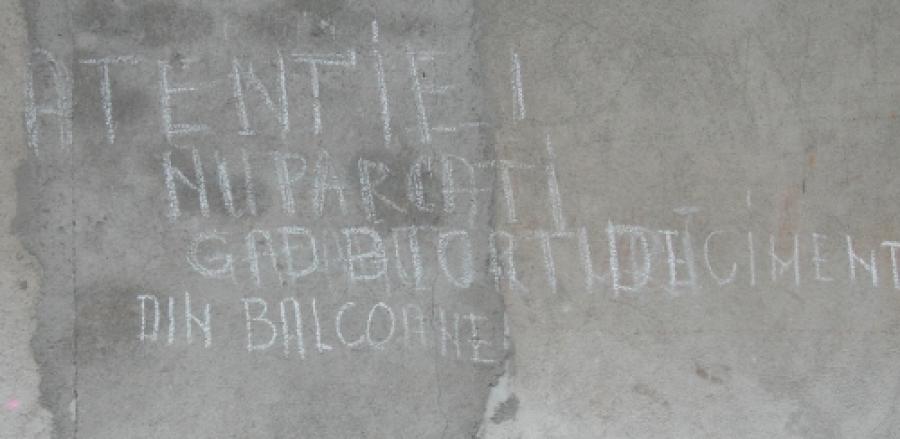 ATENTIE !
NU PARCATI
CAD BUCATI DE CIMENT
DIN BALCOANE